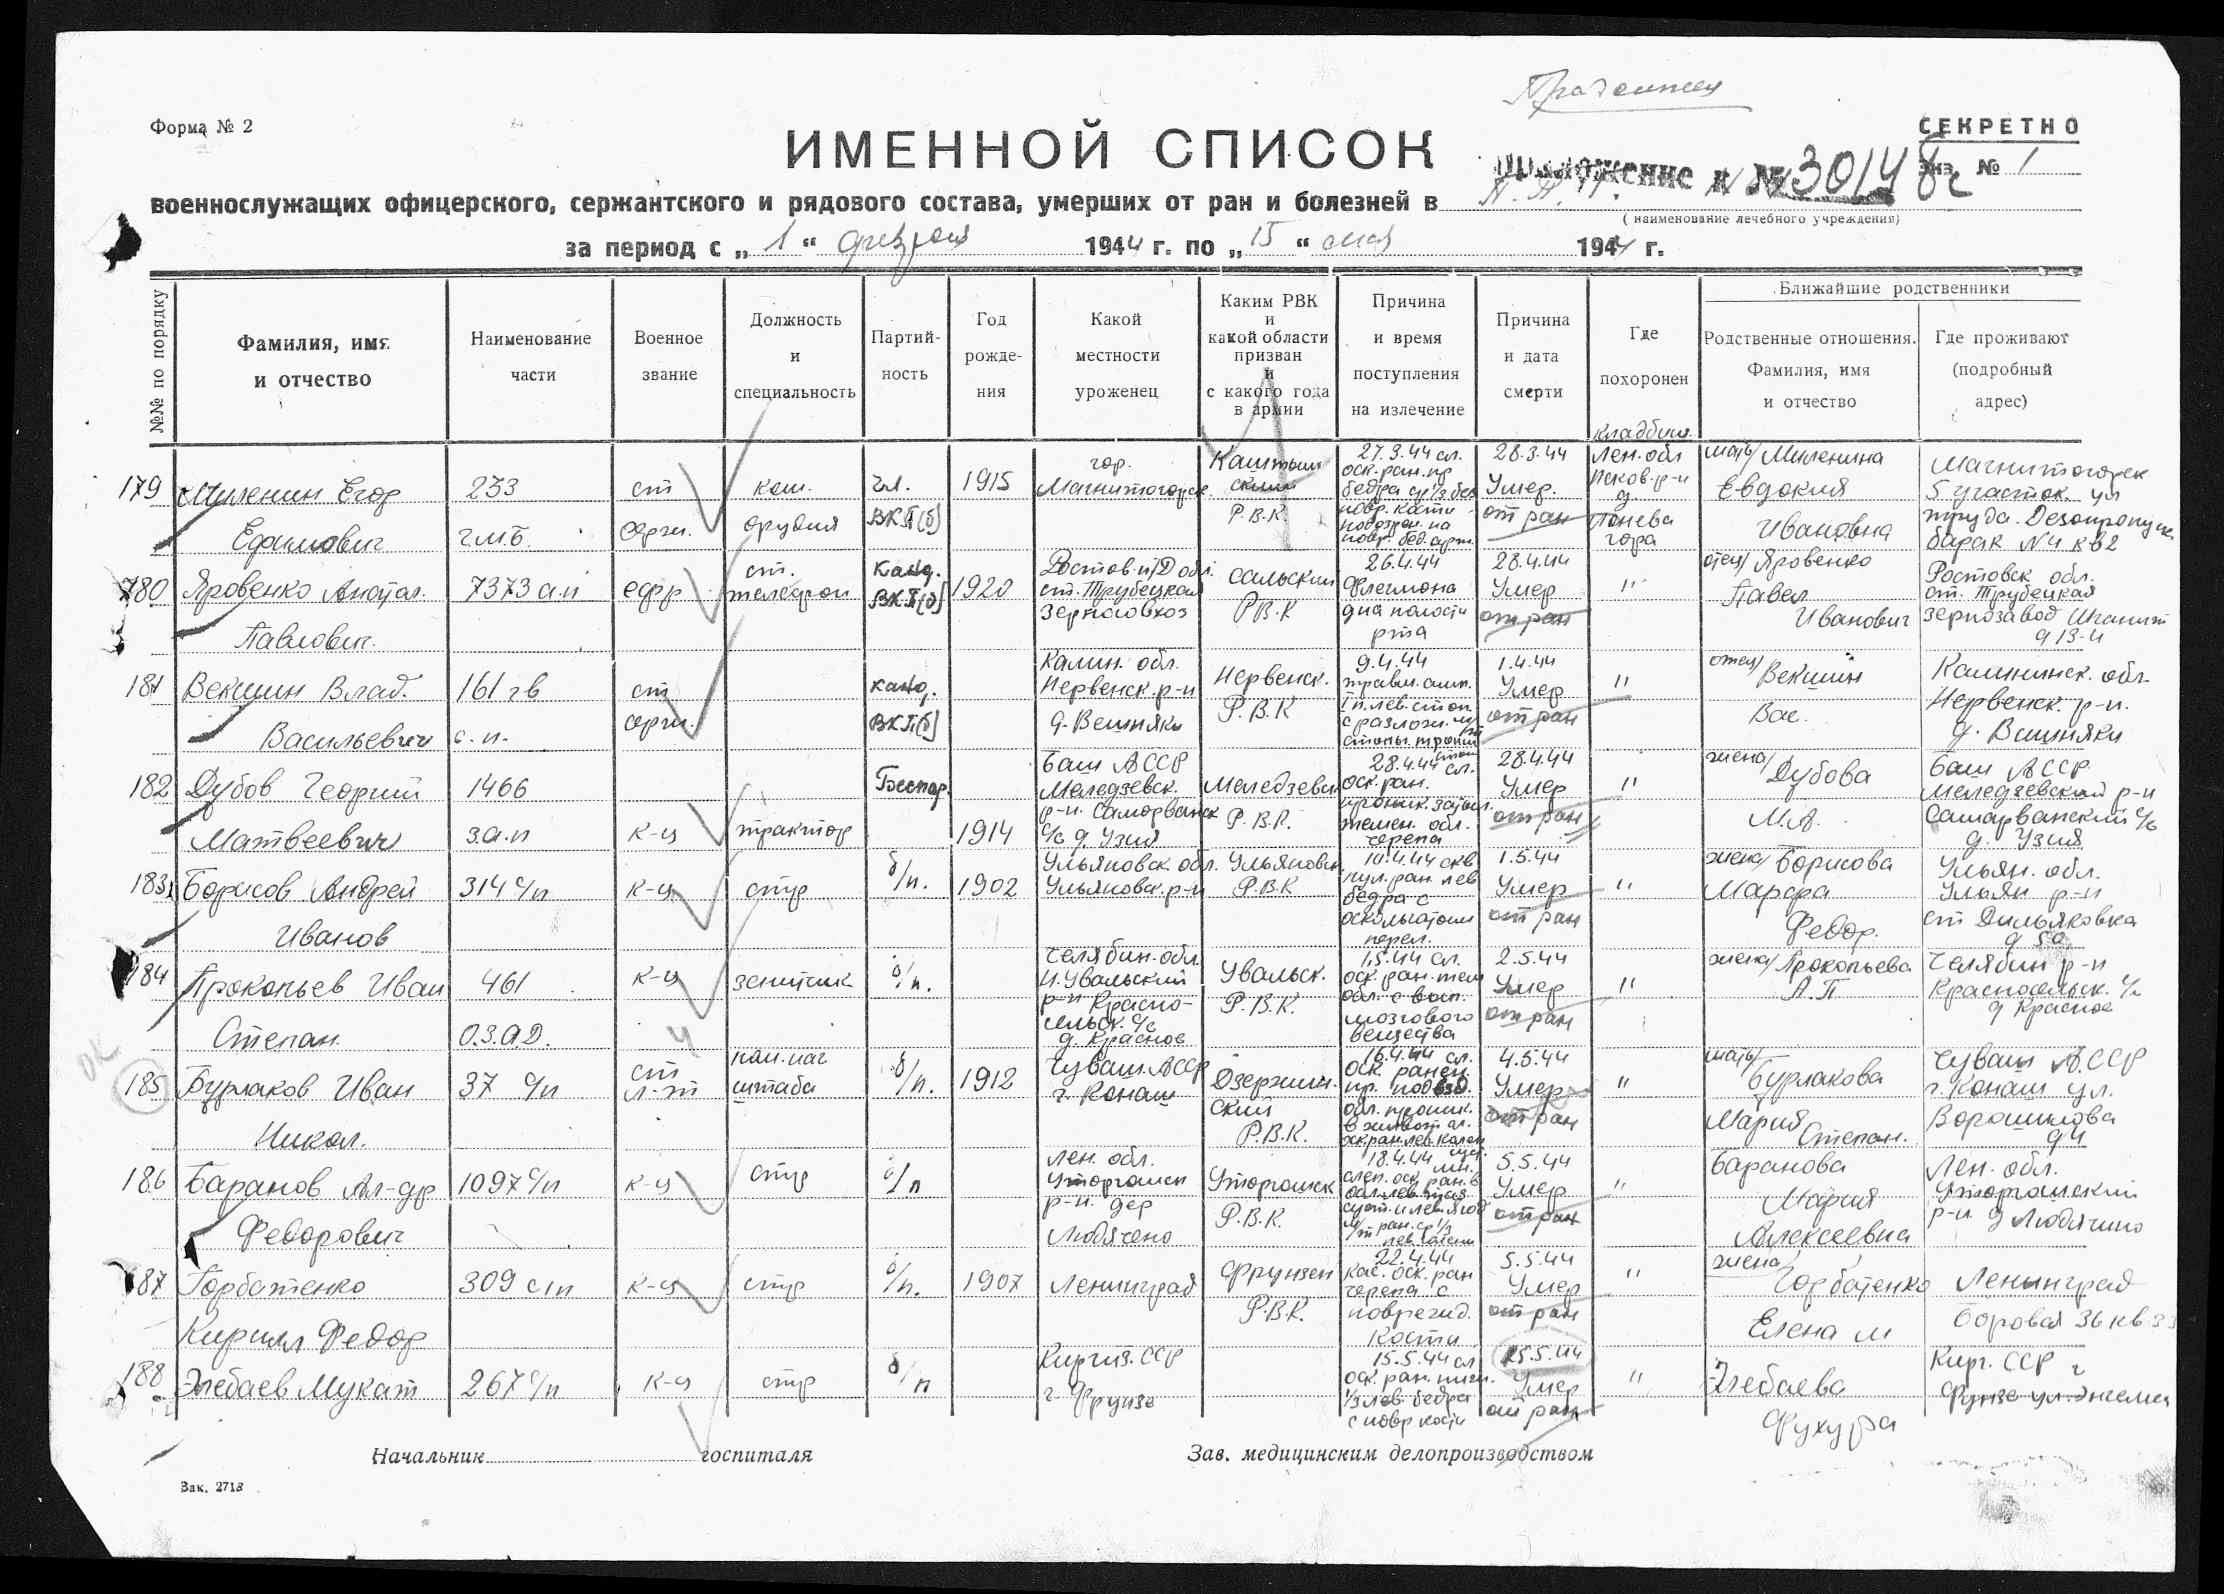 Форма № 2
СЕКРЕТНО
ИМЕННОЙ СПИСОК
приложение к № 30148с
Экз. № 1
военнослужащих офицерского, сержантского и рядового состава, умерших от ран и болезней в
( наименование лечебного учреждения)
за период с „ 1 “ февраля 1944 г. по „ 15 “ мая 1944 г.
№№ по порядку
Фамилия, имя и отчество
Наименование части
Военное звание
Должность и специальность
Партий- ность
Год рожде- ния
Какой местности уроженец
Каким РВК и какой области призван и с какого года в армии
Причина и время поступления на излечение
Причина и дата смерти
Где похоронен
Ближайшие родственники
Родственные отношения. Фамилия, имя и отчество
Где проживают (подробный адрес)
179 Миленин Егор Ефимович 233 г.м.б. ст серж. ком. орудия чл. ВКП(б) 1915 гор. Магнитогорск Р.В.К. 27.3.44 сл. оск. ран. пр бедра 28.3.44 Умер от ран кладбищ. Лен. обл Псков. р-н д. гора мать/ Миленина Евдокия Ивановна Магнитогорск 5 участок ул труда барак №4 кв2
180 Яровенко Анатол. Павлович. 7373 а.п ефр ст. телефон канд. ВКП(б) 1920 Ростов н/Д обл. ст. Трубецкая зерносовхоз Сальский РВК 26.4.44 Флегмона дна полости рта 28.4.44 Умер от ран " отец/ Яровенко Павел Иванович Ростовск обл. ст. Трубецкая
181 Векшин Влад. Васильевич 161 гв с.п. ст серж. канд. ВКП(б) Калин. обл. Нервенск. р-н д. Вешняки Нервенск. Р.В.К 9.4.44 1.4.44 Умер от ран " отец/ Векшин Вас. Калининск. обл. Нервенск. р-н. д. Вишняки
182 Дубов Георгий Матвеевич 1466 з.а.п к-ц трактор Беспар. 1914 Баш АССР Меледзевск. р-н. с/с д. Узия Р.В.К. 28.4.44 сл. оск. ран. черепа 28.4.44 Умер от ран " жена/ Дубова М.А. Баш АССР Меледзевский р-н Самарванский с/с д. Узия
183 Борисов Андрей Иванов 314 с/п к-ц стр б/п. 1902 Ульяновск. обл. Ульяновск. р-н Ульяновск Р.В.К 1.5.44 Умер от ран " жена/ Борисова Марфа Федор. Ульян. обл. Ульян р-н
184 Прокопьев Иван Степан. 461 О.З.А.Д. к-ц зенитчик б/п. Челябин. обл. Н.Увальский р-н Красно- сельск. с/с д. Красное Увальск. Р.В.К. 1.5.44 сл. оск. ран. обл. с вып. мозгового вещества 2.5.44 Умер от ран " жена/ Прокопьева А.П Челябин р-н Красносельск. с/с д Красное
185 Бурлаков Иван Никол. 37 с/п ст л-т пом. нач штаба б/п. 1912 Чуваш. АССР г. Канаш Дзержин- ский Р.В.К. 16.4.44 сл. оск. ранен. 4.5.44 Умер от ран " мать/ Бурлакова Мария Степан. Чуваш АССР г. Канаш ул. Ворошилова
186 Баранов Ал-др Федорович 1097 с/п к-ц стр б/п Лен. обл. Уторгошск р-н. дер Любячено Уторгошск Р.В.К. 18.4.44 5.5.44 Умер от ран " Баранова Мария Алексеевна Лен. обл. Уторгошский р-н д Любячино
187 Горбатенко Кирилл Федор 309 с/п к-ц стр б/п. 1907 Ленинград Фрунзен Р.В.К. 22.4.44 Кас. оск. ран черепа с поврежд. кости 5.5.44 Умер от ран " жена/ Горбатенко Елена М Ленинград Боровая 36 кв 33
188 Элебаев Мукат 267 с/п к-ц стр б/п Киргиз. ССР г. Фрунзе 15.5.44 сл оск. ран. ниж. 1/3 лев. бедра с повр кости 15.5.44 Умер от ран " Элебаева Кирг. ССР г Фрунзе ул.
Начальник госпиталя
Зав. медицинским делопроизводством
Зак. 2718